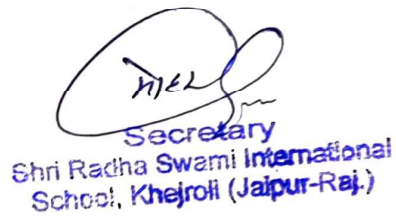 Secretary
Shri Radha Swami International
School, Khejroli (Jaipur-Raj.)